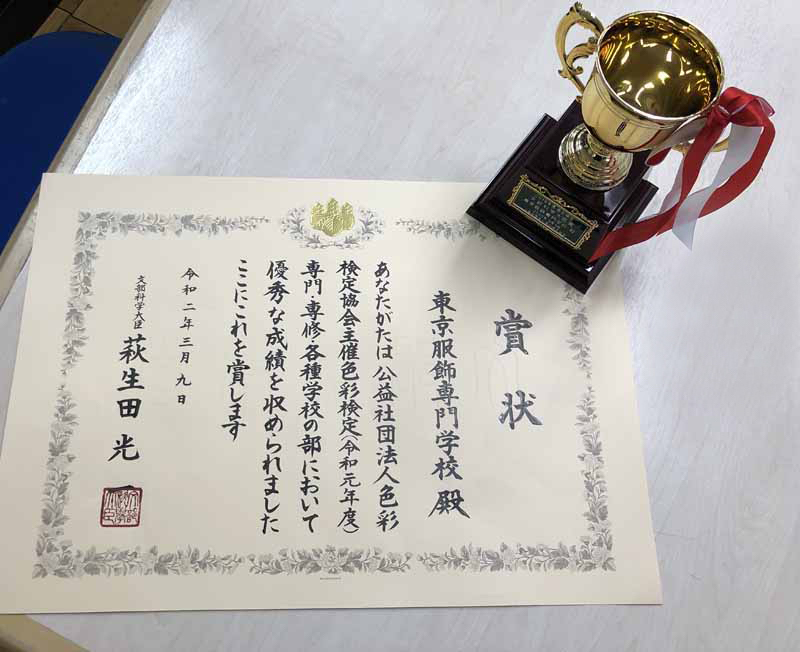 賞状
東京服飾専門学校 殿
あなたがたは公益社団法人色彩
検定協会主催色彩検定(令和元年度)
専門・専修・各種学校の部において
優秀な成績を収められました
ここにこれを賞します
令和二年三月九日
文部科学大臣 萩生田光一